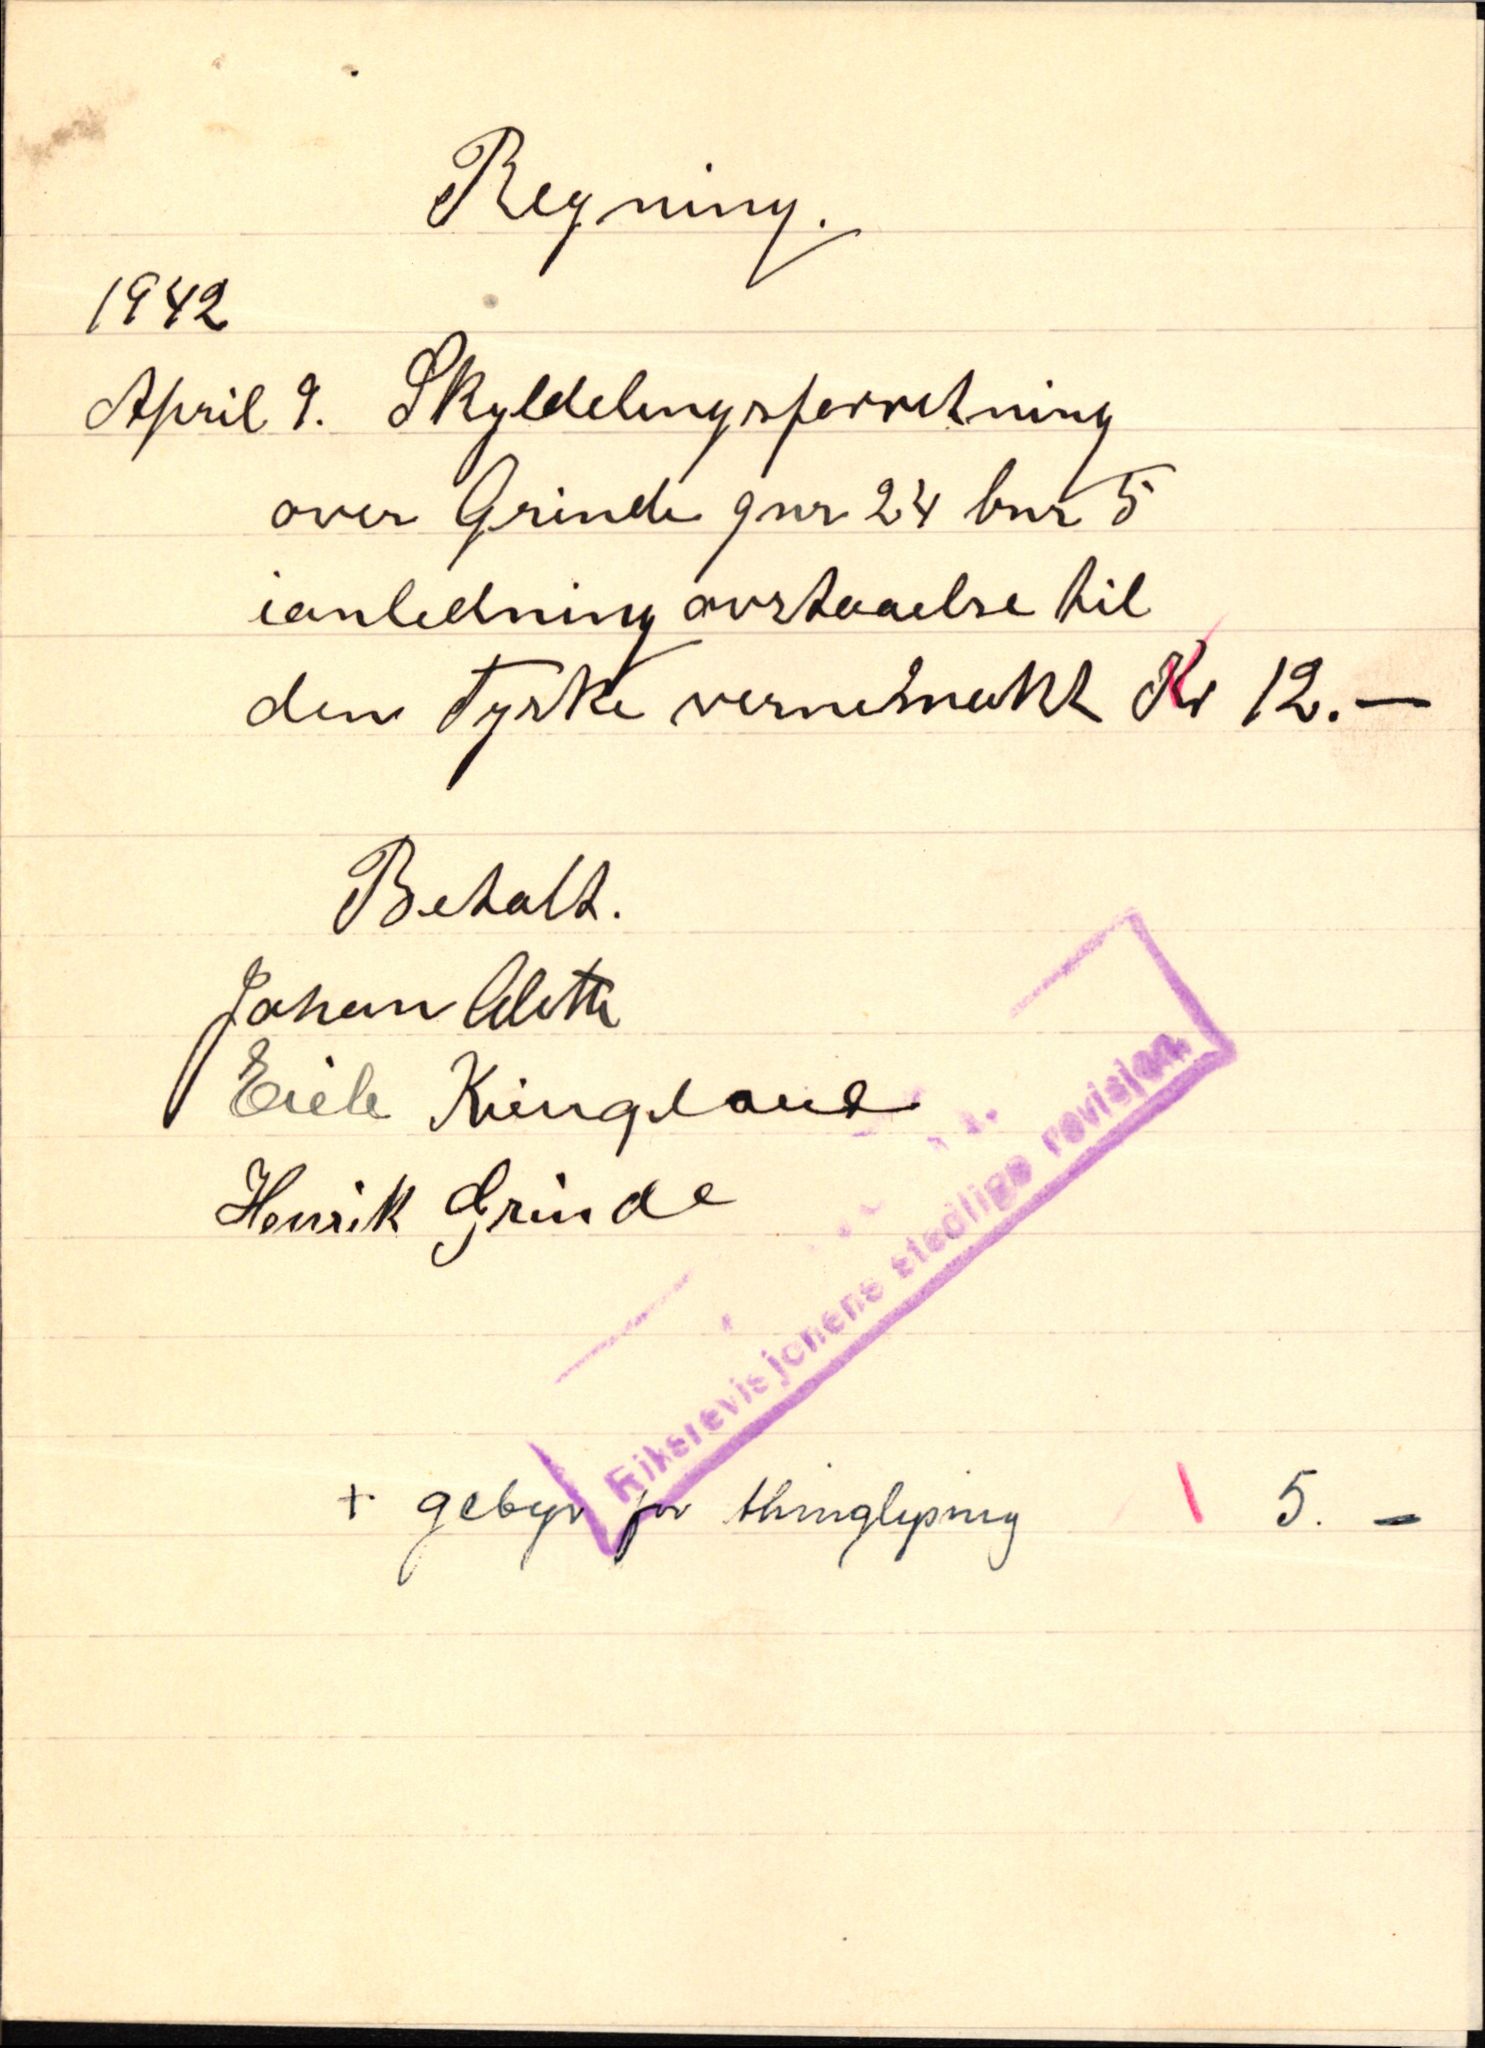 Regning.
1942
April 9. Skyldelingsforretning
over Grinde gnr 24 bnr 5
ianledning avstaaelse til
den Tyske vernemakt Kr 12.—
Betalt.
Johan
Eirik Kringeland
Henrik Grinde
Riksrevisjonens stedlige revisjon.
+ gebyr for thinglysning 5. —